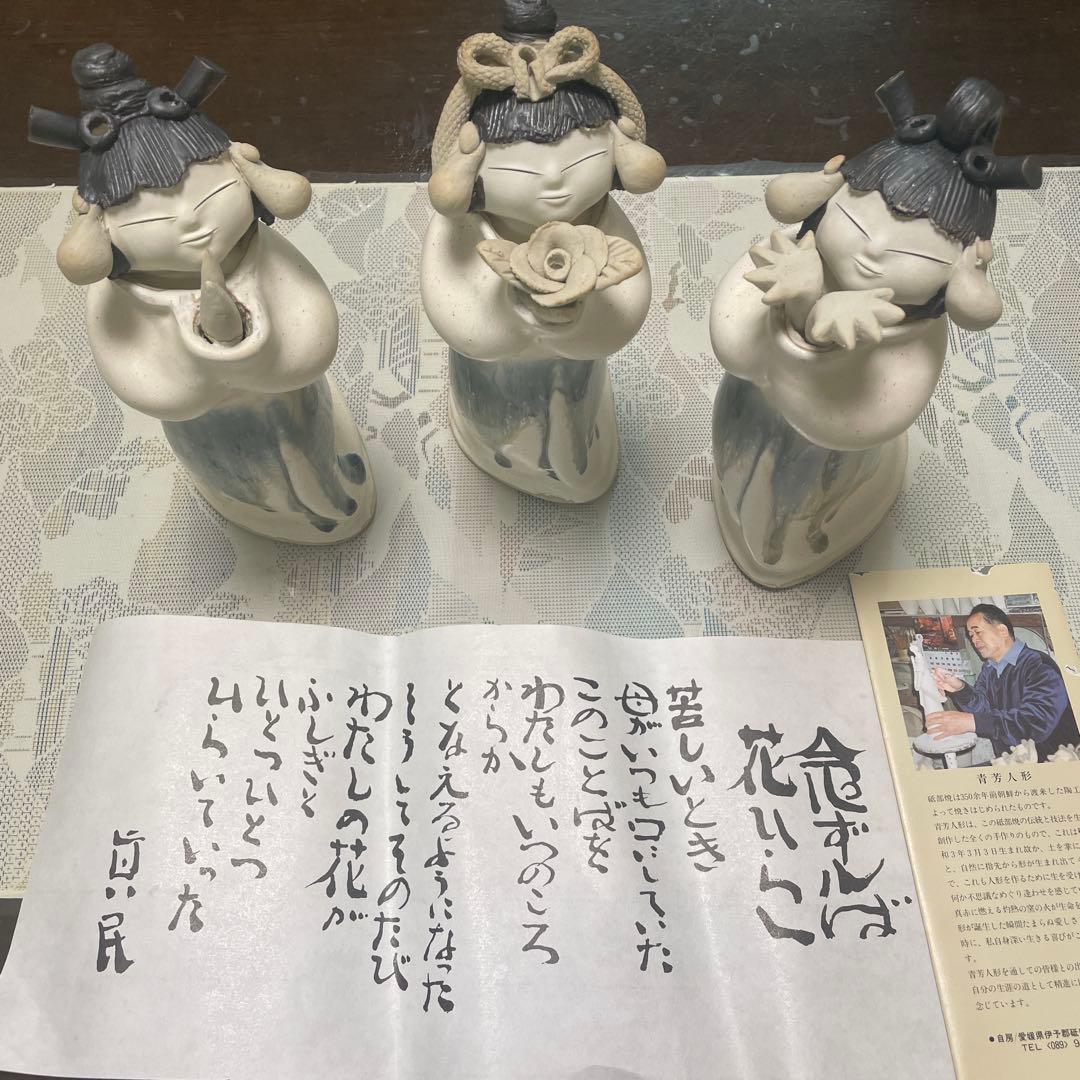 念ずれば
花ひらく
苦しいとき
母がいつも口にしていた
このことばを
わたしもいつのころ
からか
となえるようになった
そうしてそのたび
わたしの花が
ふしぎと
ひとつひとつ
ひらいていった
眞民
青芳人形
砥部焼は350余年前朝鮮から渡来した陶工
よって焼きはじめられたものです。
青芳人形は、この砥部焼の伝統と技法を生
創作した全くの手作りのもので、これは
和3年3月3日生まれ故か、土を掌に
と、自然に指先から形が生まれ出て
で、これも人形を作るために生を受け
何か不思議なめぐり逢わせを感じて
真赤に燃える灼熱の窯の火が生命を
形が誕生した瞬間たまらぬ愛しさ
時に、私自身深い生きる喜びがこ
す。
青芳人形を通しての皆様との出
自分の生涯の道として精進に
念じています。
●自房/愛媛県伊予郡砥
TEL〈089〉9